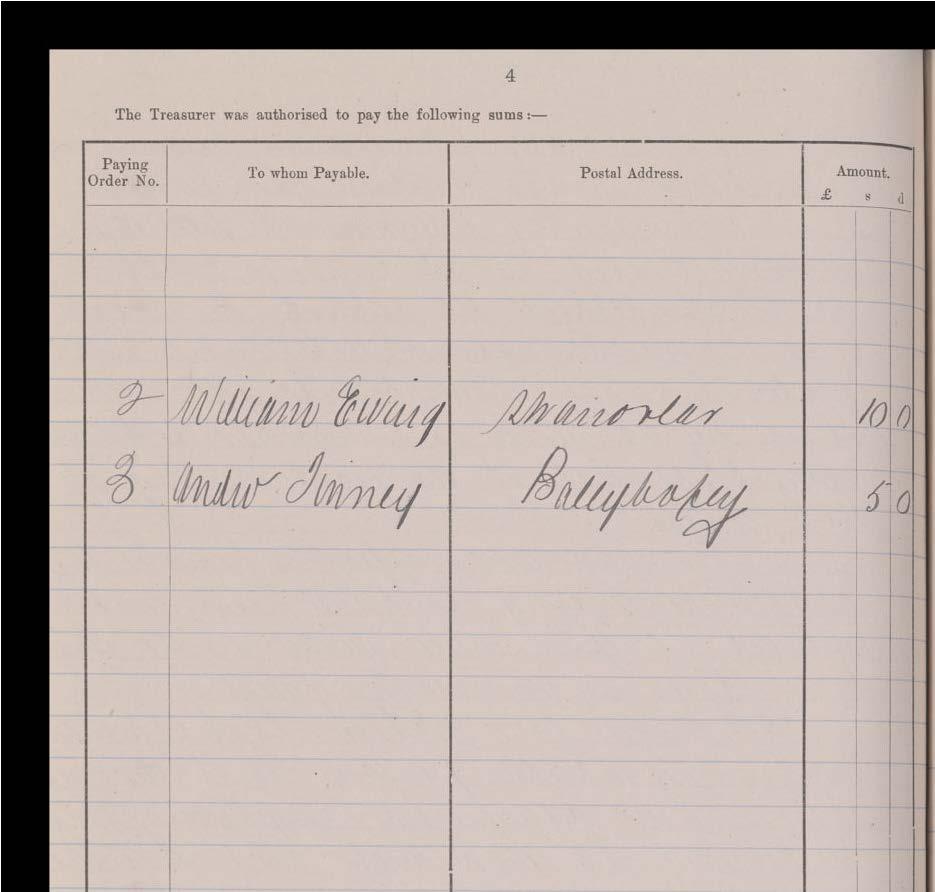 4
The Treasurer was authorised to pay the following sums:—
Paying Order No. To whom Payable. Postal Address. Amount.
£ s d
2 William Ewing Stranorlar 10 0
3 Andw Tinney Ballybofey 5 0